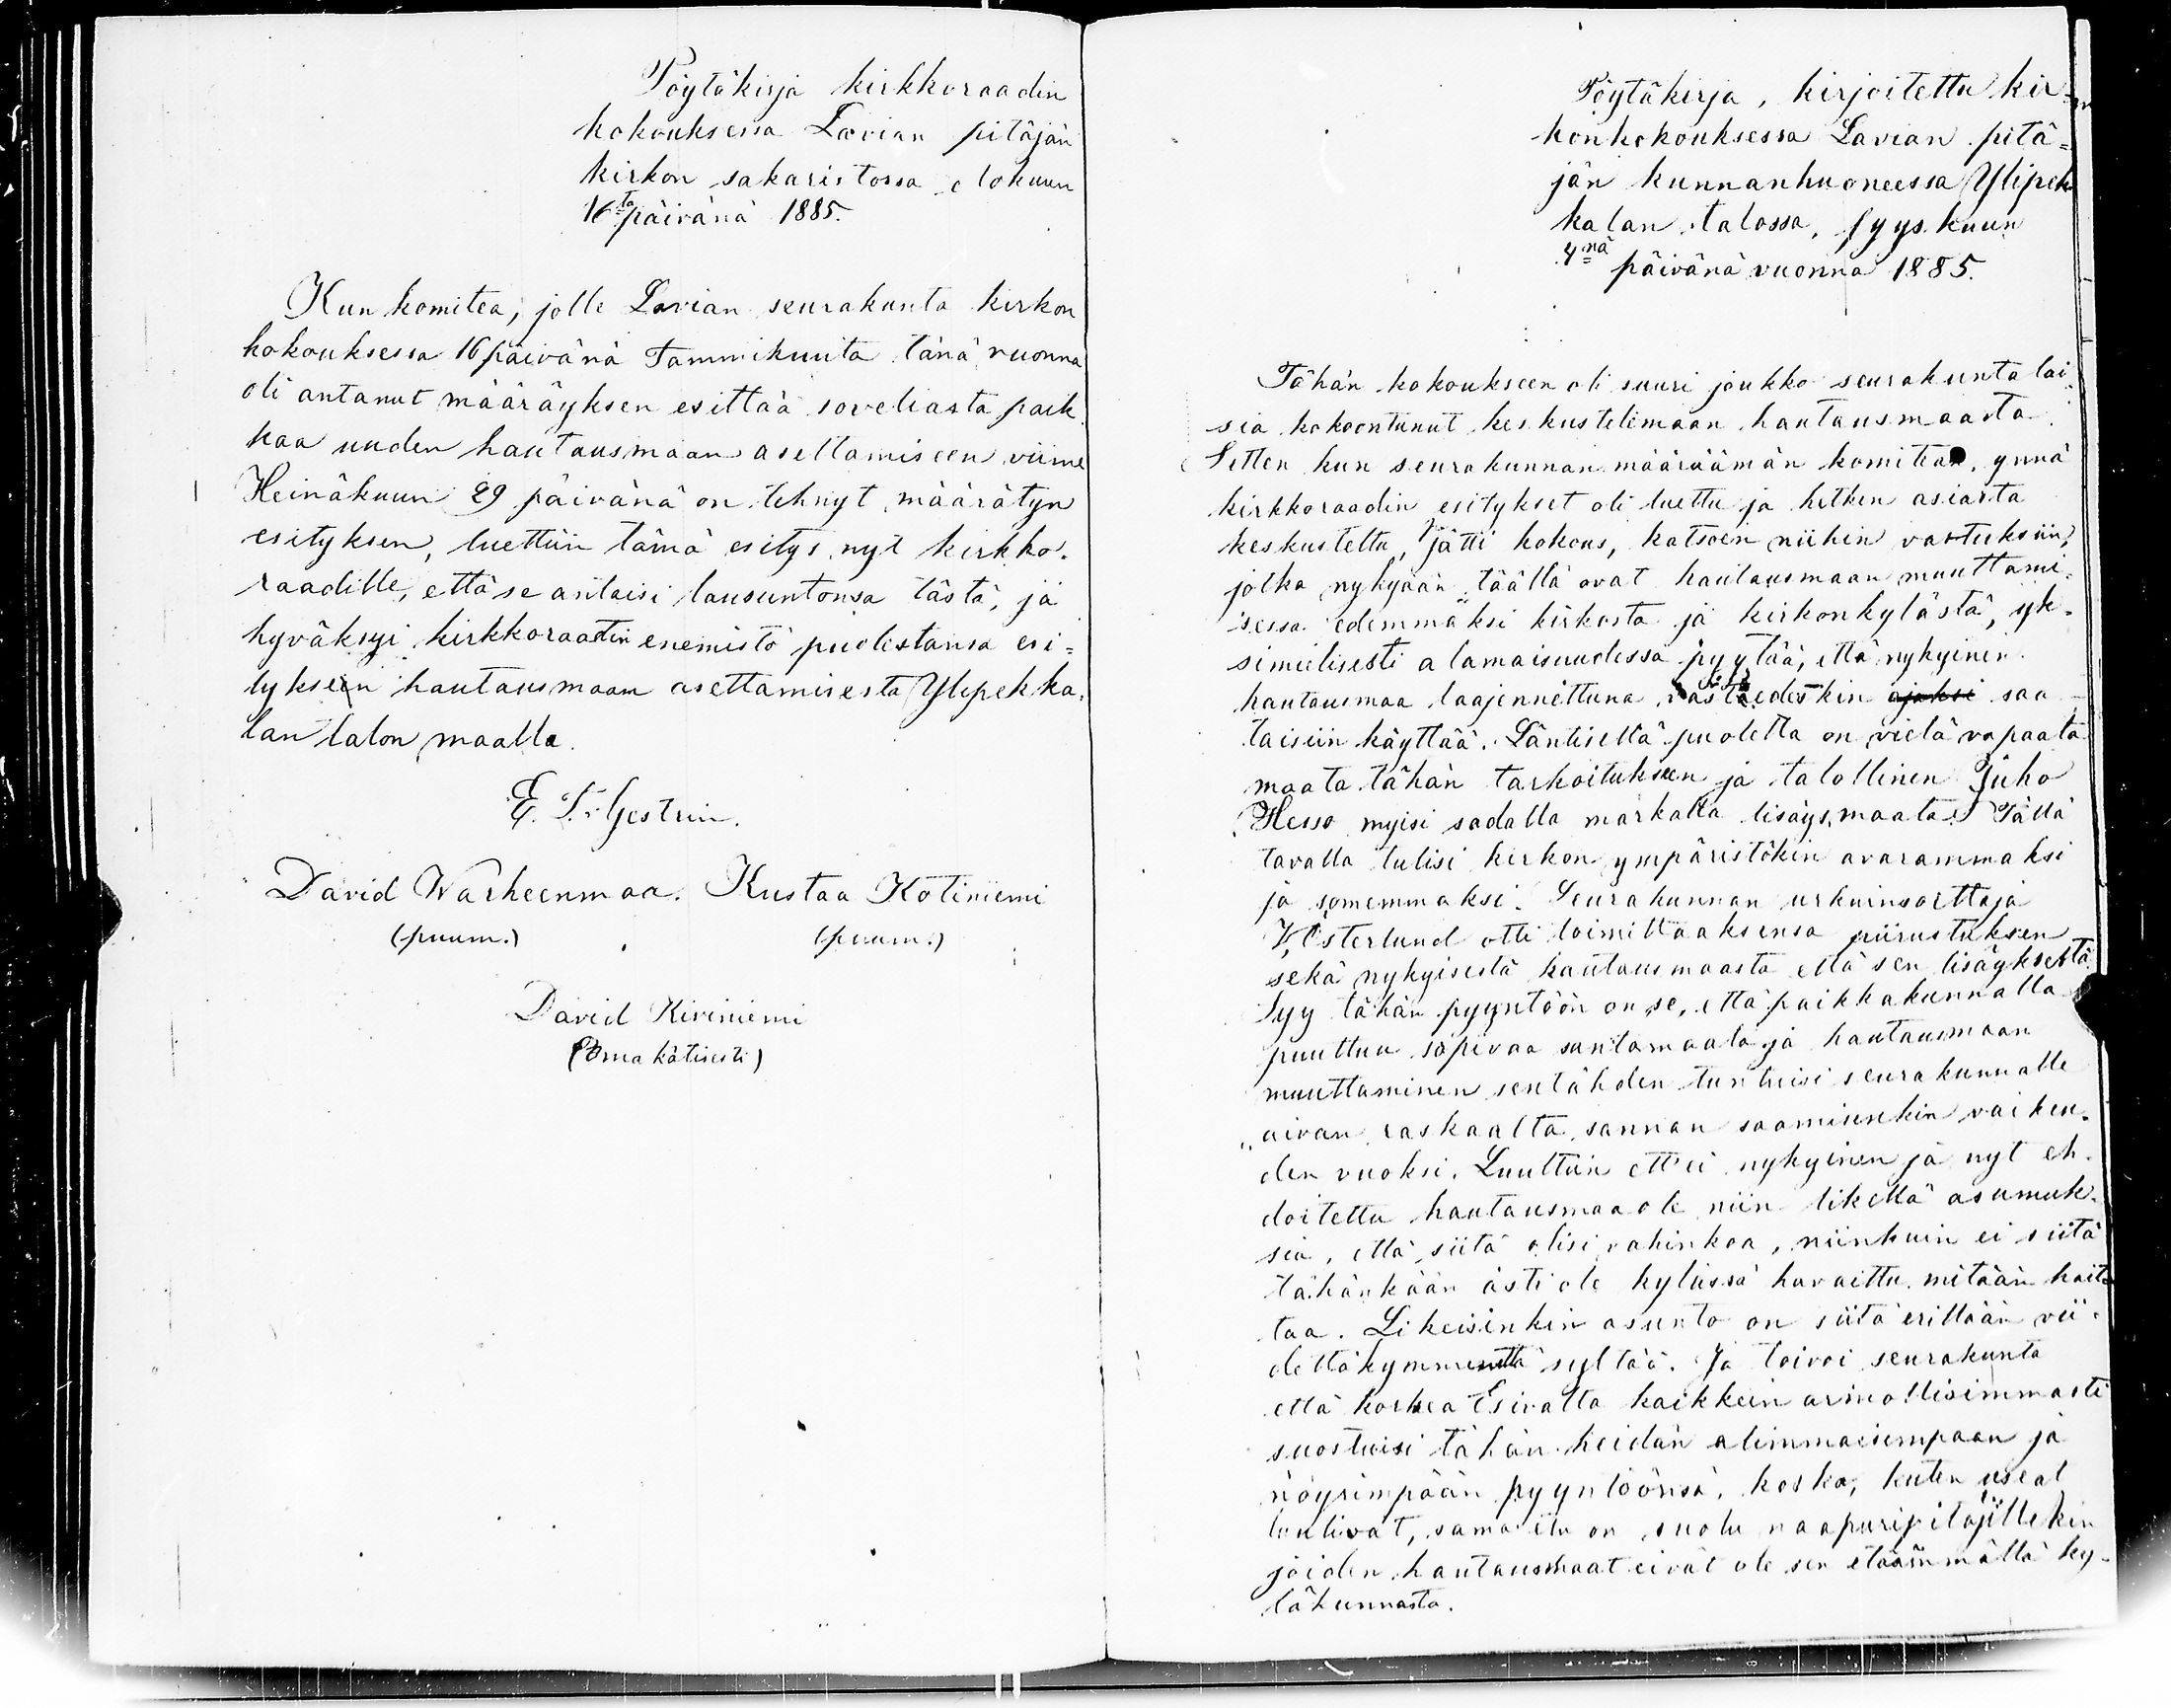 Pöytäkirja kirkkoraadin
kokouksessa Lavian pitäjän
kirkon sakaristossa elokuun
16ta päivänä 1885.
Kun komitea, jolle Lavian seurakunta kirkon
kokouksessa 16 päivänä Tammikuuta tänä vuonna
oli antanut määräyksen esittää soveliasta paik
kaa uuden hautausmaan asettamiseen viime
Heinäkuun 29 päivänä on tehnyt määrätyn
esityksen, luettiin tämä esitys nyt kirkko-
raadille, että se antaisi lausuntonsa tästä, ja
hyväksyi kirkkoraatin enemistö puolestansa esi=
tyksein hautausmaan asettamisesta Ylipekka-
lan talon maalla.
E. F. Gestrin.
David Warheenmaa. Kustaa Kotiniemi
(puum.) (puum.)
David Kiviniemi
(Oma kätisesti)
Pöytäkirja, kirjoitettu kir=
konkokouksessa Lavian pitä=
jän kunnanhuoneessa Ylipek
kalan talossa, Syyskuun
4nä päivänä vuonna 1885.
Tähän kokoukseen oli suuri joukko seurakuntalai-
sia kokoontunut keskustelemaan hautausmaasta.
Sitten kun seurakunnan määräämän komitean, ynnä
kirkkoraadin esitykset oli luettu ja hetken asiasta
keskusteltu, jätti kokous, katsoen niihin vastuksiin,
jotka nykyään täällä ovat hautausmaan muuttami-
sessa edemmäksi kirkosta ja kirkonkylästä, yk-
simielisesti alamaisuudessa pyytää, että nykyinen
hautausmaa laajennettuna vastaedeskin ajaksi saa
taisiin käyttää. Läntisellä puolella on vielä vapaata
maata tähän tarkoitukseen ja talollinen Juho
Hesso myisi sadalla markalla lisäysmaata. Tällä
tavalla tulisi kirkon ympäristökin avarammaksi
ja somemmaksi. Seurakunnan urkuinsoittaja
V. Österlund otti toimittaaksensa piirustuksen
sekä nykyisestä hautausmaasta että sen lisäyksestä.
Syy tähän pyyntöön on se, että paikkakunnalla
puuttuu sopivaa santamaata ja hautausmaan
muuttaminen sentähden tuntuisi seurakunnalle
aivan raskaalta sannan saamisenkin vaikeu-
den vuoksi. Luultiin ett'ei nykyinen ja nyt eh-
doitettu hautausmaa ole niin likellä asumuk-
sia, että siitä olisi vahinkoa, niinkuin ei siitä
tähänkään asti ole kylässä havaittu mitään hait
taa. Likeisinkin asunto on siitä erillään vii-
dettäkymmentä syltää. Ja toivoi seurakunta
että korkea Esivalta kaikkein armollisimmasti
suostuisi tähän heidän alimmaisimpaan ja
nöyrimpään pyyntöönsä, koska, kuten useat
luulivat, sama etu on suotu naapuripitäjillekin
joiden hautausmaat eivät ole sen etäämmällä ky-
läkunnasta.